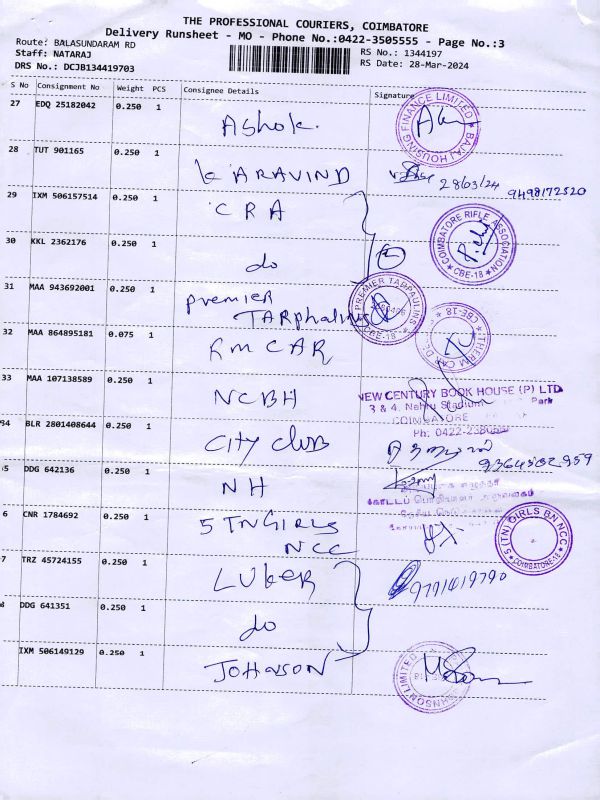 THE PROFESSIONAL COURIERS, COIMBATORE
Delivery Runsheet - MO - Phone No.:0422-3505555 - Page No.:3
Route: BALASUNDARAM RD
RS No.: 1344197
Staff: NATARAJ
RS Date: 28-Mar-2024
DRS No.: DCJB134419703
S No Consignment No Weight PCS Consignee Details Signature
27 EDQ 25182042 0.250 1 Ashok. BAJAJ HOUSING FINANCE LIMITED
28 TUT 901165 0.250 1 K ARAVIND 28/03/24 9498172520
29 IXM 506157514 0.250 1 CRA COIMBATORE RIFLE ASSOCIATION * CBE-18 *
30 KKL 2362176 0.250 1 do 2
31 MAA 943692001 0.250 1 premier TARphalins PREMIER TARPAULINE * CBE-18 *
32 MAA 864895181 0.075 1 RM CAR CBE-18
33 MAA 107138589 0.250 1 NCBH
NEW CENTURY BOOK HOUSE (P) LTD
3 & 4, Nehru Stadium Park
COIMBATORE
Ph: 0422-
34 BLR 2801408644 0.250 1 City club
5 DDG 642136 0.250 1 NH
6 CNR 1784692 0.250 1 5 TN GIRLS NCC 5 (TN) GIRLS BN NCC * COIMBATORE-18 *
7 TRZ 45724155 0.250 1 LUKER 9791419790
DDG 641351 0.250 1 do
IXM 506149129 0.250 1 JOHNSON LIMITED